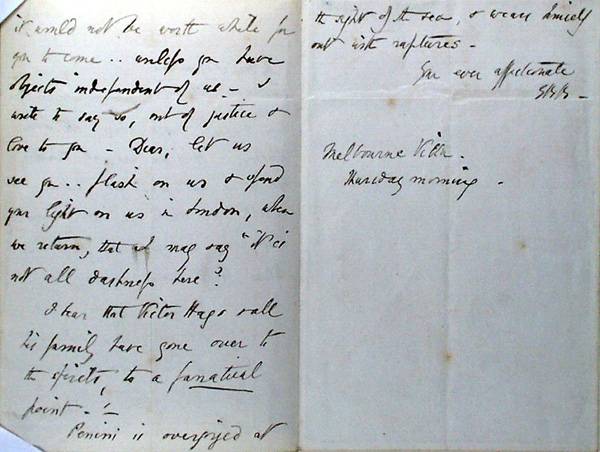 it would not be worth while for
you to come .. unless you have
objects independent of us - I
write to say so, out of justice &
love to you - Dear, let us
see you .. flash on us & spend
your light on us in London, when
we return, that we may say "It is
not all darkness here"?
I hear that Victor Hugo & all
his family have gone over to
the spirits, to a fanatical
point -!-
Penini is overjoyed at
the sight of the sea, & wears himself
out with raptures -
Your ever affectionate
EBB -
Melbourne Villa.
Thursday morning -